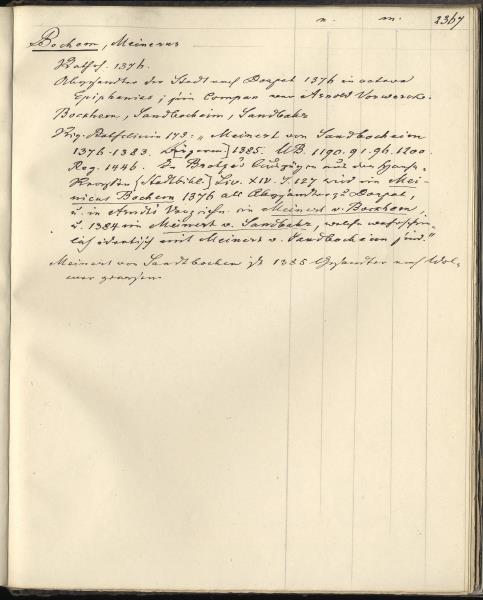 n. m. 2367
Bochem, Meinerus
Rathsh. 1376.
Abgesandter der Stadt nach Dorpat 1376 in octava
Epiphanias; sein Compan war Arnold Vorwerck.
Bockhem, Sandbocheim, Sandbake
Böthführ, Rathslinie 173: „Meinert von Sandbocheim
1376-1383. 1385. UB. 1190. 91. 96. 1200.
Reg. 1446. In Brotze's Auszügen aus den Hanse-
Recessen [Stadtbibl.] Liv. XIV. S. 127 wird ein Mei-
nicus Bochem 1376 als Abgesandter zu Dorpat,
u. in Arndt's Verzeichn. ein Meinert v. Bockhem,
u. 1384 ein Meinert v. Sandbake, welche wahrschein-
lich identisch mit Meinert v. Sandbocheim sind."
Meinert von Sandtbochen ist 1385 Gesandter nach Wol-
mar gewesen.